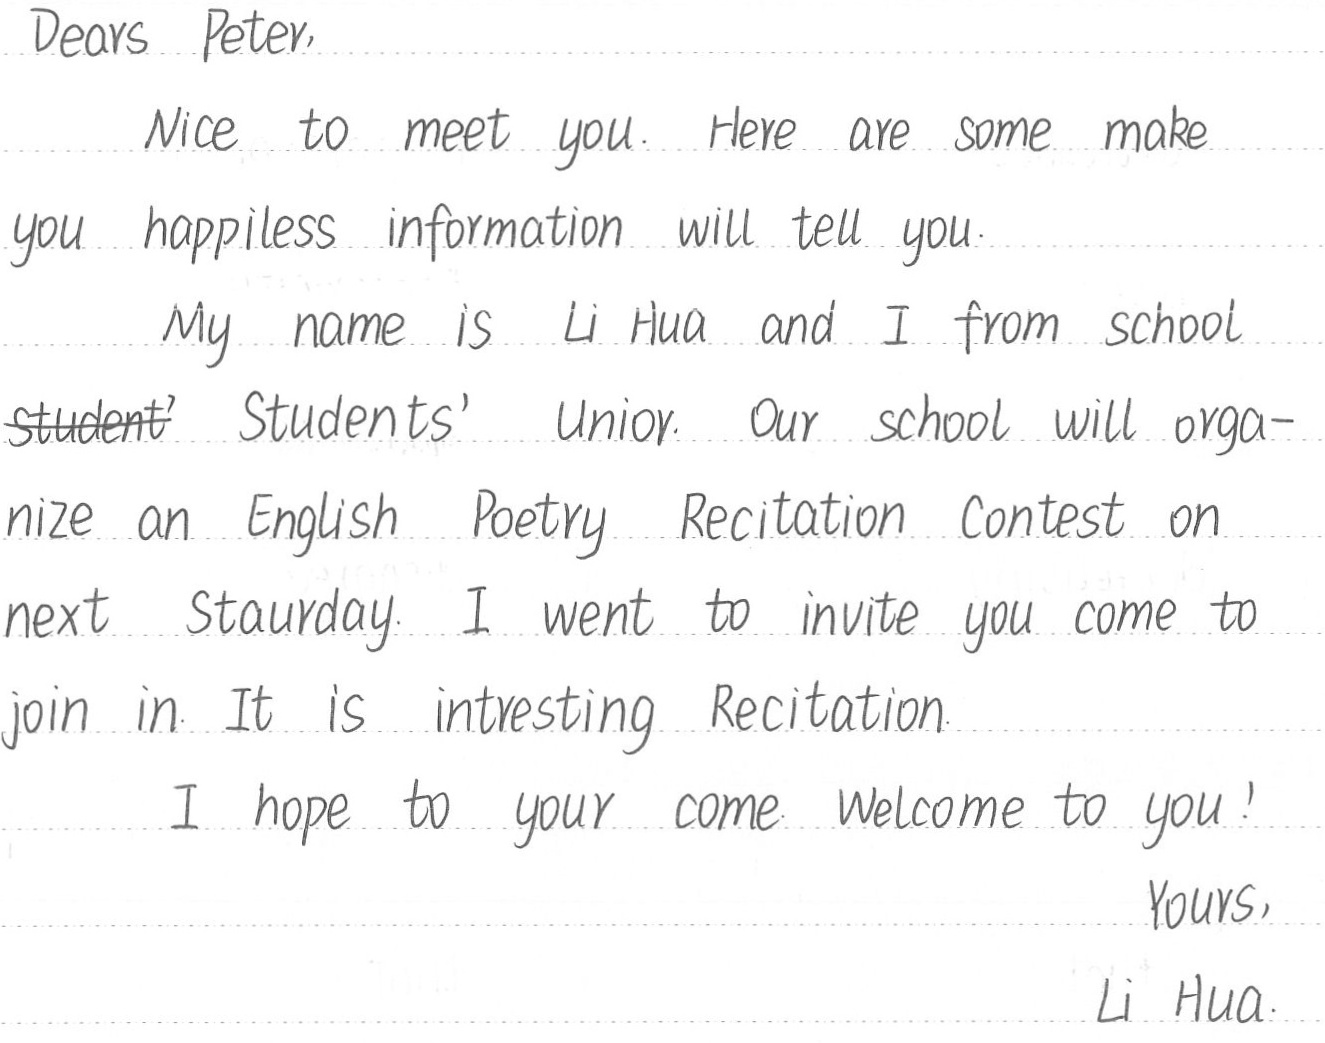 Dears Peter,
Nice to meet you. Here are some make
you happiless information will tell you.
My name is Li Hua and I from school
student' Students' Unior. Our school will orga-
nize an English Poetry Recitation Contest on
next Staurday. I went to invite you come to
join in. It is intresting Recitation.
I hope to your come. Welcome to you!
Yours,
Li Hua.